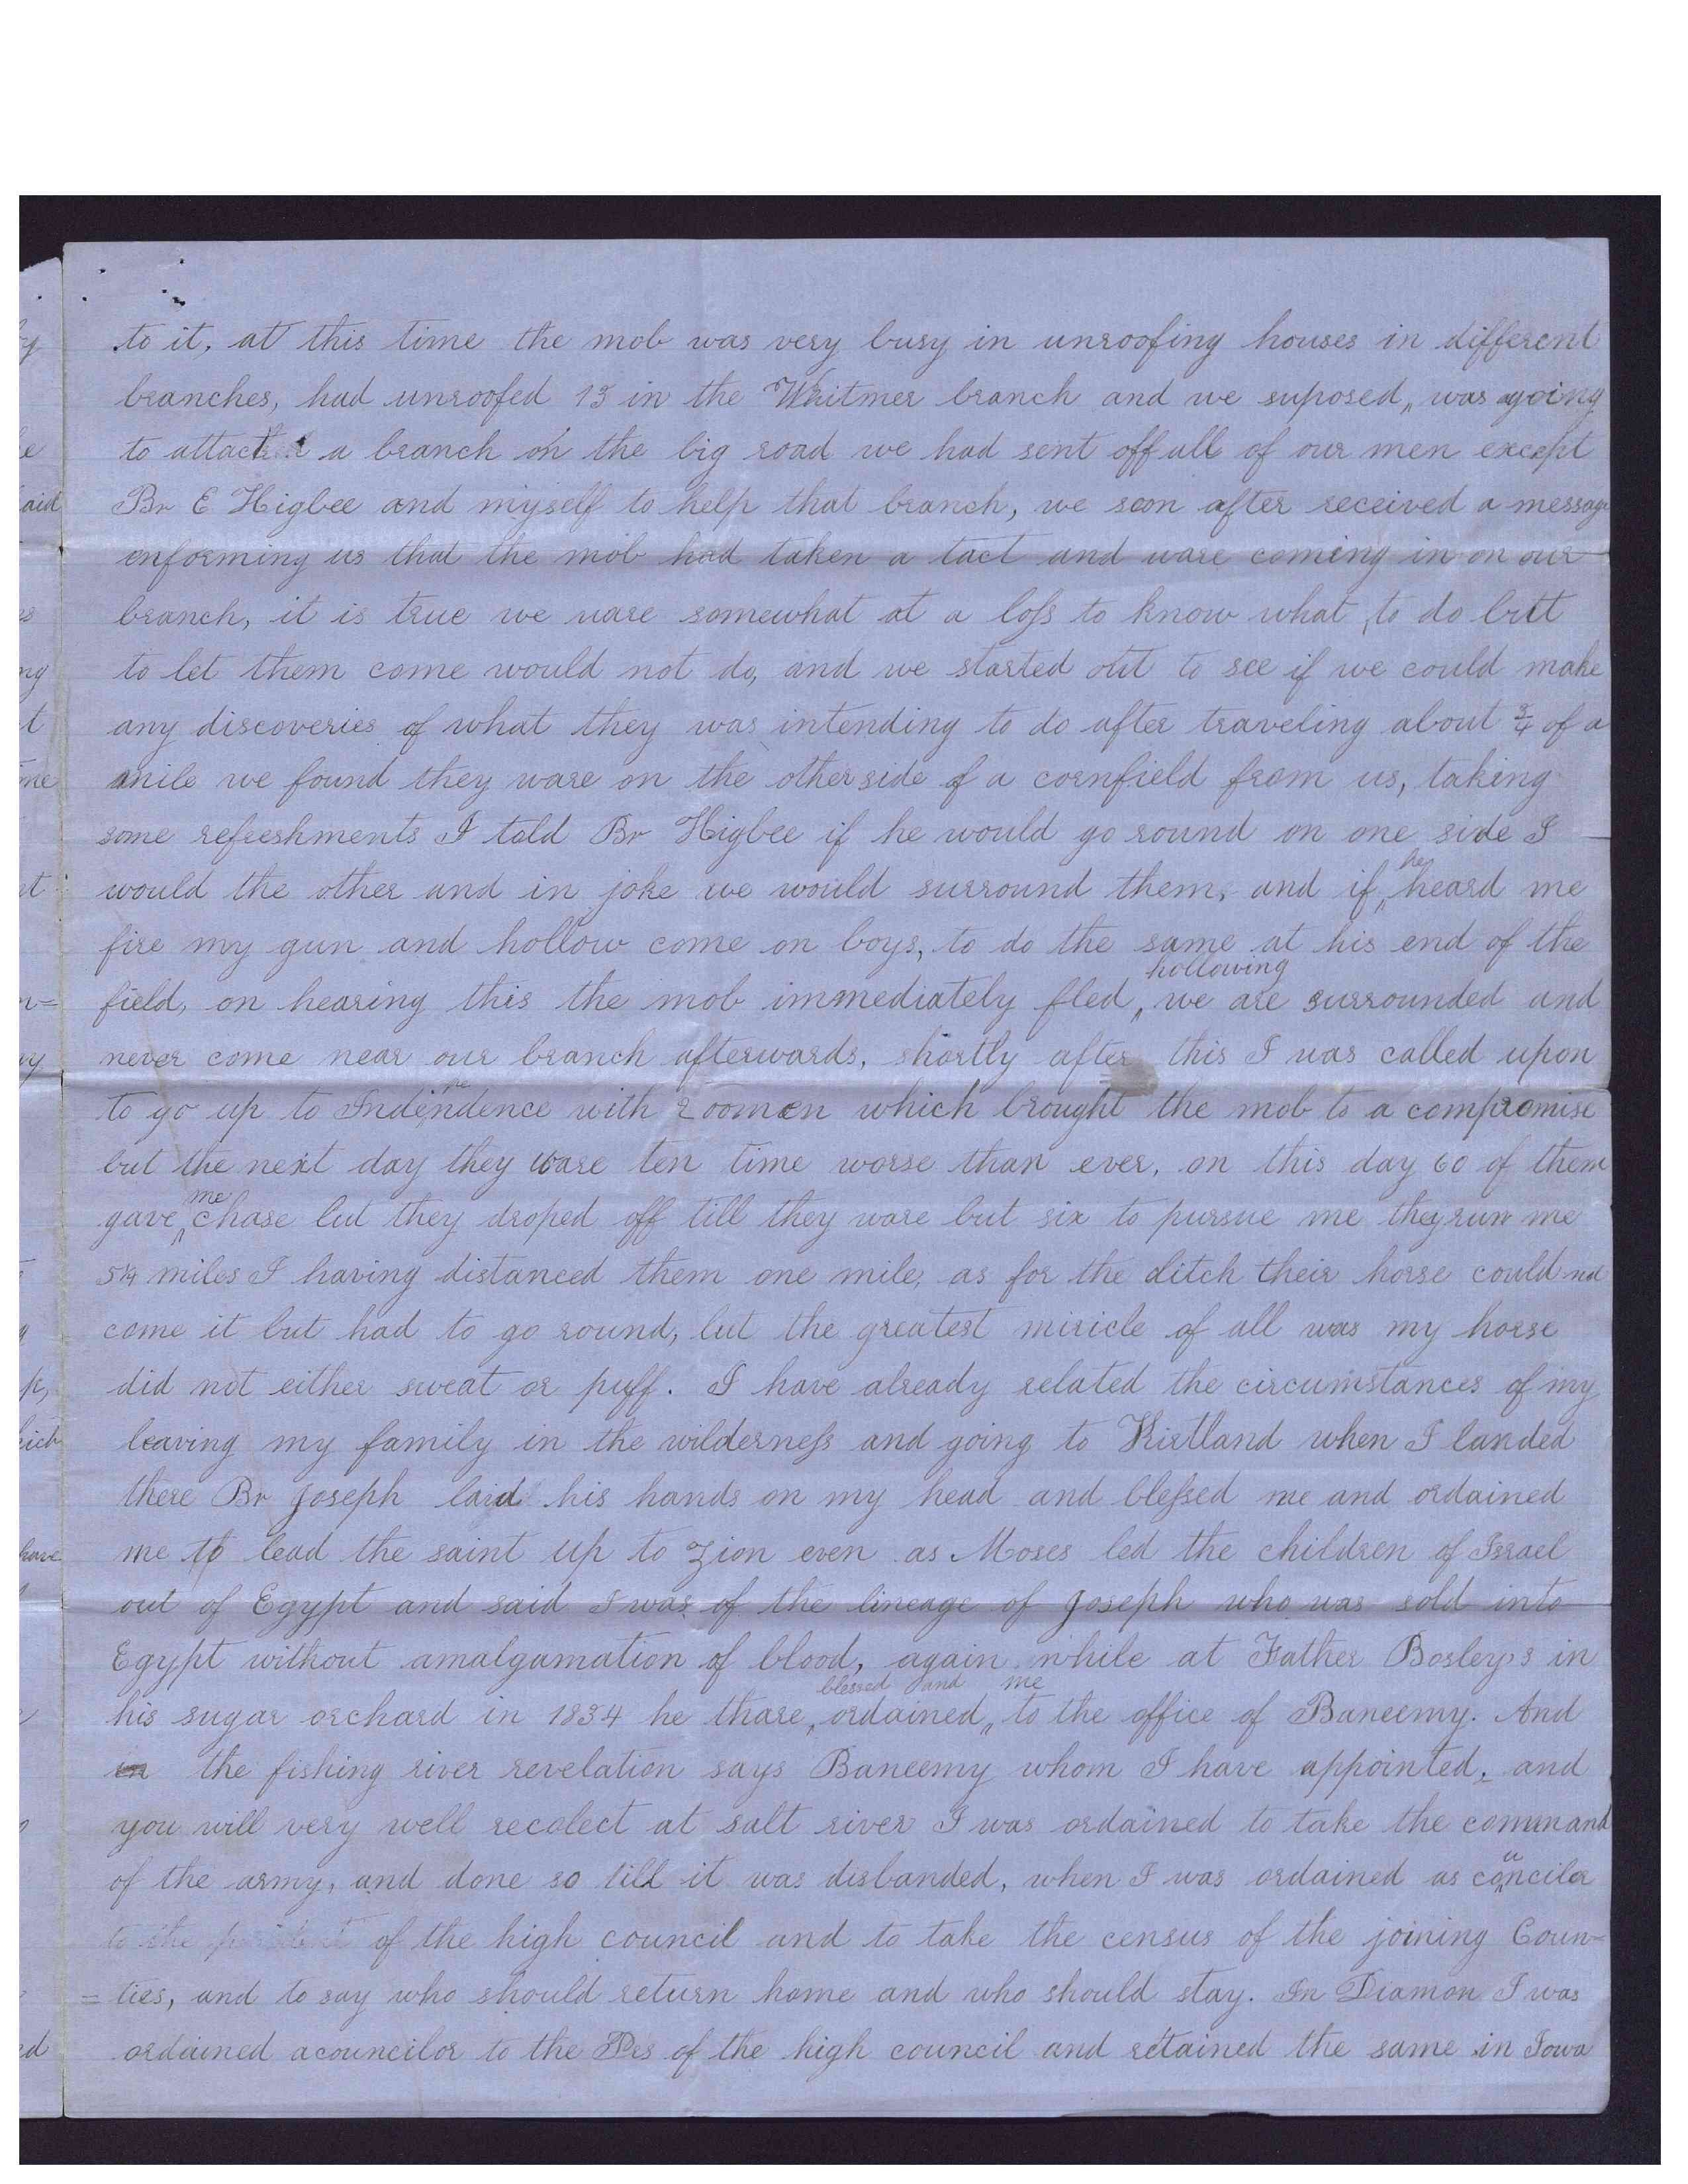 to it, at this time the mob was very busy in unroofing houses in different
branches, had unroofed 13 in the Whitmer branch and we suposed, was going
to attack a branch on the big road we had sent off all of our men except
Br E Higbee and myself to help that branch, we soon after received a message
enforming us that the mob had taken a tact and ware coming in on our
branch, it is true we ware somewhat at a loss to know what to do but
to let them come would not do, and we started out to see if we could make
any discoveries of what they was intending to do after traveling about 3/4 of a
mile we found they ware on the other side of a cornfield from us, taking
some refreshments I told Br Higbee if he would go round on one side I
would the other and in joke we would surround them, and if he heard me
fire my gun and hollow come on boys, to do the same at his end of the
field, on hearing this the mob immediately fled hollowing we are surrounded and
never come near our branch afterwards, shortly after this I was called upon
to go up to Indendence with 200 men which brought the mob to a compromise
but the next day they ware ten time worse than ever, on this day 60 of them
gave me chase but they droped off till they ware but six to pursue me they run me
5 1/4 miles I having distanced them one mile, as for the ditch their horse could not
come it but had to go round, but the greatest miricle of all was my horse
did not either sweat or puff. I have already related the circumstances of my
leaving my family in the wilderness and going to Kirtland when I landed
there Br Joseph laid his hands on my head and blessed me and ordained
me to lead the saint up to Zion even as Moses led the children of Israel
out of Egypt and said I was of the lineage of Joseph who was sold into
Egypt without amalgamation of blood, again while at Father Bosleys in
his sugar orchard in 1834 he thare blessed and ordained me to the office of Baneemy. And
in the fishing river revelation says Baneemy whom I have appointed, and
you will very well recolect at salt river I was ordained to take the command
of the army, and done so till it was disbanded, when I was ordained as councilor
to the of the high council and to take the census of the joining Coun=
=ties, and to say who should return home and who should stay. In Diamon I was
ordained a councilor to the Pres of the high council and retained the same in Iowa